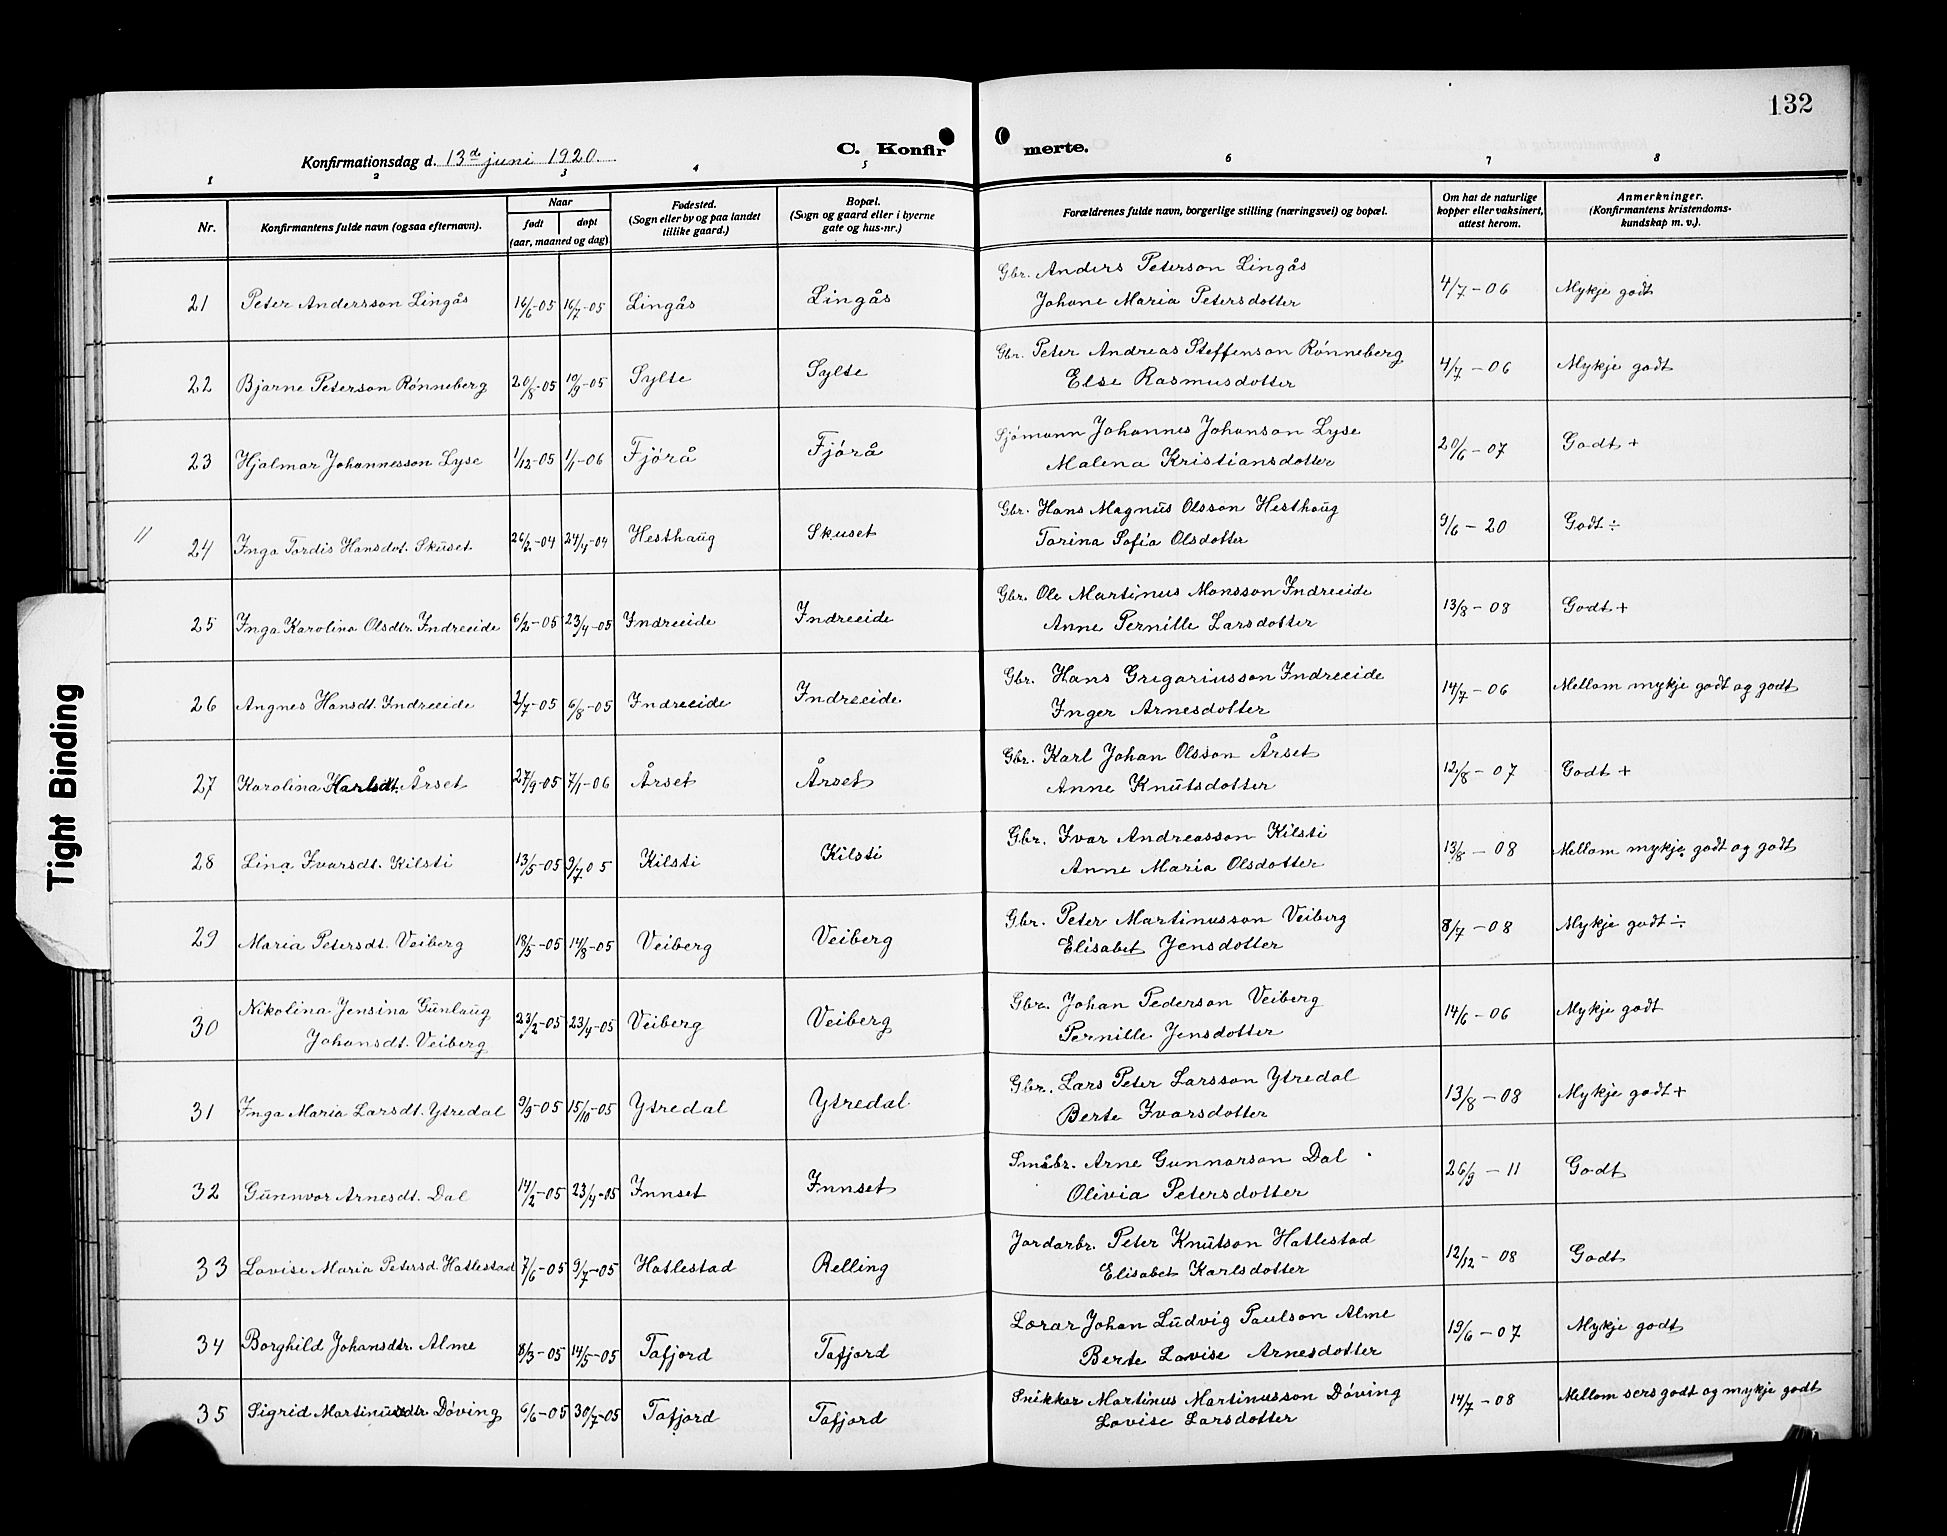 132
C. Konfirmerte.
Konfirmationsdag d. 13de juni 1920.
1 2 3 4 5 6 7 8
Nr.
Konfirmantens fulde navn (ogsaa efternavn).
Naar
født døpt
(aar, maaned og dag)
Fødested.
(Sogn eller by og paa landet
tillike gaard.)
Bopæl.
(Sogn og gaard eller i byerne
gate og hus-nr.)
Forældrenes fulde navn, borgerlige stilling (næringsvei) og bopæl.
Om hat de naturlige
kopper eller vaksinert,
attest herom.
Anmerkninger.
(Konfirmantens kristendoms-
kundskap m. v.).
Gbr. Anders Peterson Lingås
21 Peter Andersson Lingås 16/6-05 16/7-05 Lingås Lingås Johane Maria Petersdotter 4/7-06 Mykje godt
Gbr. Peter Andreas Steffenson Rønneberg
22 Bjarne Peterson Rønneberg 20/8-05 10/9-05 Sylte Sylte Else Rasmusdotter 4/7-06 Mykje godt
Sjømann Johannes Johanson Lyse
23 Hjalmar Johannesson Lyse 1/12-05 1/1-06 Fjørå Fjørå Malena Kristiansdotter 20/6-07 Godt +
Gbr. Hans Magnus Olsson Hesthaug
" 24 Inga Tordis Hansdot. Skuset 26/2-04 24/4-04 Hesthaug Skuset Torina Sofia Olsdotter 9/6-20 Godt ÷
Gbr. Ole Martinus Monsson Indreeide
25 Inga Karolina Olsdtr. Indreeide 6/2-05 23/4-05 Indreeide Indreeide Anne Pernille Larsdotter 13/8-08 Godt +
Gbr. Hans Gregoriusson Indreeide
26 Angnes Hansdt. Indreeide 2/7-05 6/8-05 Indreeide Indreeide Inger Arnesdotter 14/7-06 Mellom mykje godt og godt
Gbr. Karl Johan Olsson Årset
27 Karolina Karlsdt. Årset 27/9-05 7/1-06 Årset Årset Anne Knutsdotter 12/8-07 Godt +
Gbr. Ivar Andreasson Kilsti
28 Lina Ivarsdt. Kilsti 13/5-05 9/7 05 Kilsti Kilsti Anne Maria Olsdotter 13/8-08 Mellom mykje godt og godt
Gbr. Peter Martinusson Veiberg
29 Maria Petersdt. Veiberg 18/5-05 14/8-05 Veiberg Veiberg Elisabet Jensdotter 8/7-08 Mykje godt ÷
Nikolina Jensina Gunlaug Gbr. Johan Pederson Veiberg
30 Johansdt. Veiberg 23/2-05 23/4-05 Veiberg Veiberg Pernille Jensdotter 14/6-06 Mykje godt
Gbr. Lars Peter Larsson Ytredal
31 Inga Maria Larsdt. Ytredal 9/9-05 15/10-05 Ytredal Ytredal Berte Ivarsdotter 13/8-08 Mykje godt +
Småbr. Arne Gunnarson Dal
32 Gunnvor Arnesdt. Dal 14/2-05 23/4-05 Innset Innset Olivia Petersdotter 26/9-11 Godt
Jordarbr. Peter Knutson Hatlestad
33 Lovise Maria Petersd. Hatlestad 7/6-05 9/7-05 Hatlestad Relling Elisabet Karlsdotter 12/12-08 Godt
Lærar Johan Ludvig Paulson Alme
34 Borghild Johansdtr. Alme 8/3-05 14/5-05 Tafjord Tafjord Berte Lovise Arnesdotter 19/6-07 Mykje godt
Snikkar Martinus Martinusson Døving
35 Sigrid Martinusdtr Døving 6/6-05 30/7-05 Tafjord Tafjord Lovise Larsdotter 14/7-08 Mellom sers godt og mykje godt
Tight Binding